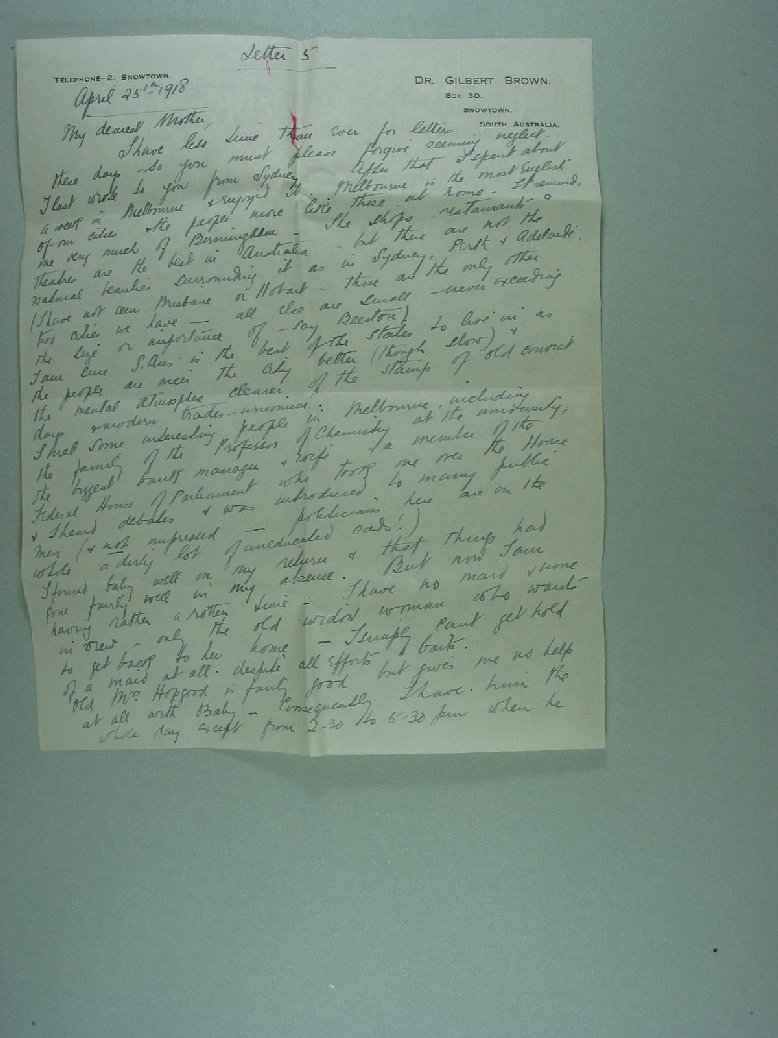 Letter 5
TELEPHONE—2, SNOWTOWN.
DR. GILBERT BROWN.
BOX 30,
SNOWTOWN,
SOUTH AUSTRALIA.
April 25th 1918
My dearest Mother,
I have less time than ever for letters
these days - so you must please forgive seeming neglect.
I last wrote to you from Sydney. After that I spent about
a week in Melbourne & enjoyed it. Melbourne is the most English
of our cities & the people more like those at home - It remind.
me very much of Birmingham - The shops - restaurants &
theatres are the best in Australia - but there are not the
natural beauties surrounding it as in Sydney, Perth & Adelaide.
(I have not seen Brisbane or Hobart - these are the only other
two cities we have - all else are small - never exceeding
the size or importance of - say Beeston)
I am sure S. Aus is the best of the States to live in as
the people are nicer the City better (though slow) &
the mental atmosphere clearer of the stamp of old convict
days & modern trades-unionism.
I met some interesting people in Melbourne, including
the family of the Professor of Chemistry at the university,
the biggest bank manager & wife & a member of the
Federal House of Parliament who took me over the House
& I heard debates & was introduced to many public
men (& not impressed - politicians here are on the
whole a dirty lot of uneducated cads!)
I found baby well on my return & that things had
gone fairly well in my absence. But now I am
having rather a rotten time - I have no maid & none
in view - only the old widow woman who wants
to get back to her home - I simply can't get hold
of a maid at all. despite all efforts & baits.
Old Mrs. Hopgood is fairly good but gives me no help
at all with Baby - Consequently I have him the
whole day except from 2-30 to 5-30 pm when he